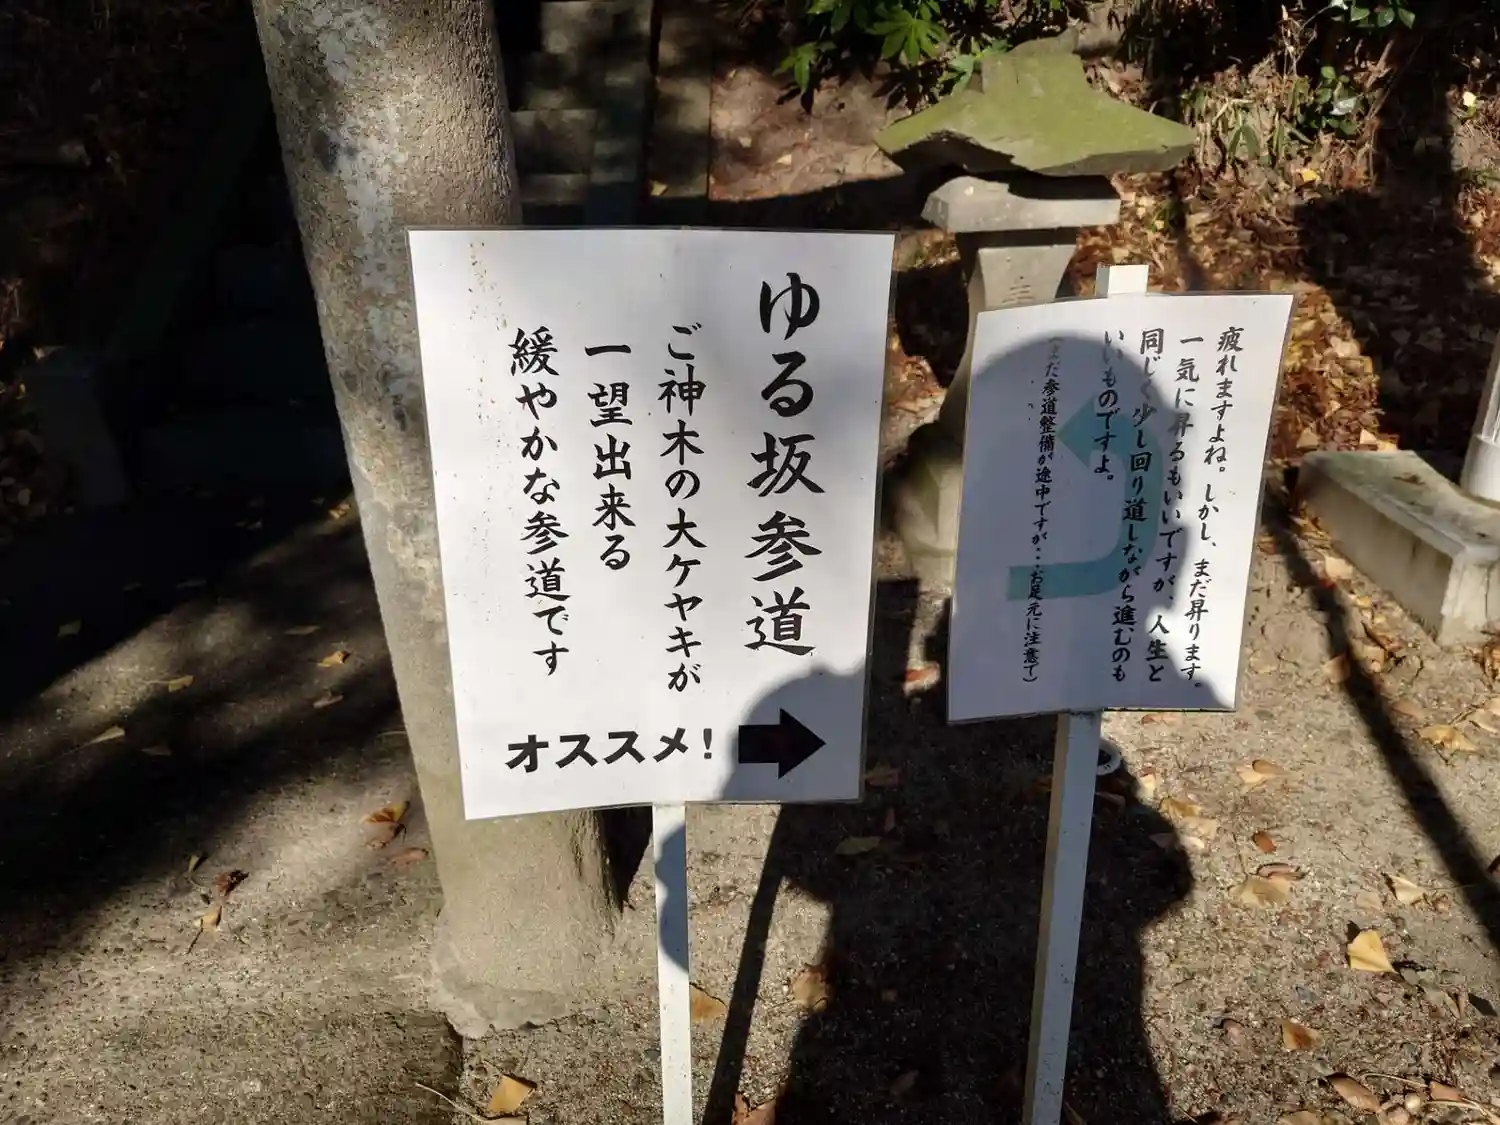 ゆる坂参道
ご神木の大ケヤキが
一望出来る
緩やかな参道です
オススメ!
疲れますよね。しかし、まだ昇ります。
一気に昇るもいいですが、人生と
同じく少し回り道しながら進むのも
いいものですよ。
(まだ参道整備が途中ですが・・・お足元に注意て)